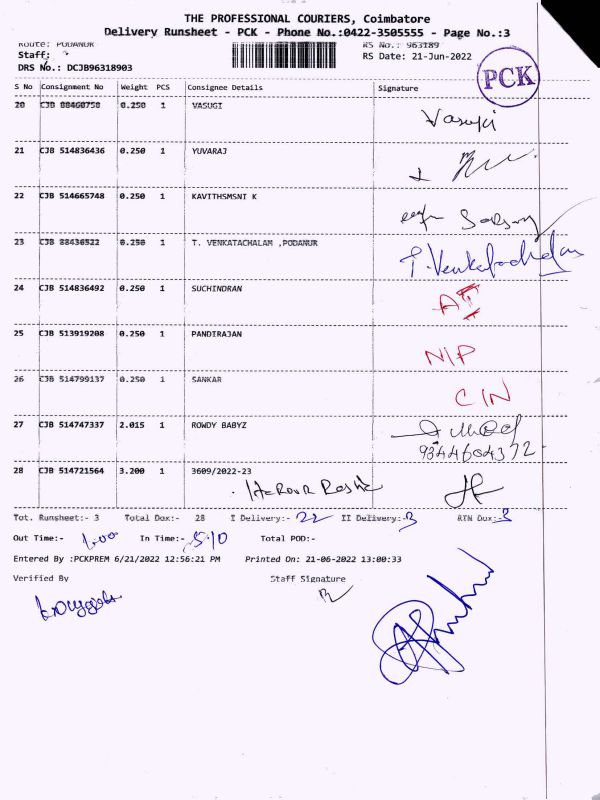 THE PROFESSIONAL COURIERS, Coimbatore
Delivery Runsheet - PCK - Phone No.:0422-3505555 - Page No.:3
Route: PODANUR RS No.: 963189
Staff: RS Date: 21-Jun-2022
DRS No.: DCJB96318903
PCK
S No Consignment No Weight PCS Consignee Details Signature
20 CJB 88460758 0.250 1 VASUGI Vasuki
21 CJB 514836436 0.250 1 YUVARAJ
22 CJB 514665748 0.250 1 KAVITHSMSNI K
23 CJB 88436522 0.250 1 T. VENKATACHALAM ,PODANUR T. Venkatachalam
24 CJB 514836492 0.250 1 SUCHINDRAN
25 CJB 513919208 0.250 1 PANDIRAJAN N/P
26 CJB 514799137 0.250 1 SANKAR C/N
27 CJB 514747337 2.015 1 ROWDY BABYZ
9344604372
28 CJB 514721564 3.200 1 3609/2022-23
Tot. Runsheet:- 3 Total Dox:- 28 I Delivery:- 22 II Delivery:- 3 RTN Dox:- 3
Out Time:- 1.00 In Time:- 5.10 Total POD:-
Entered By :PCKPREM 6/21/2022 12:56:21 PM Printed On: 21-06-2022 13:00:33
Verified By Staff Signature